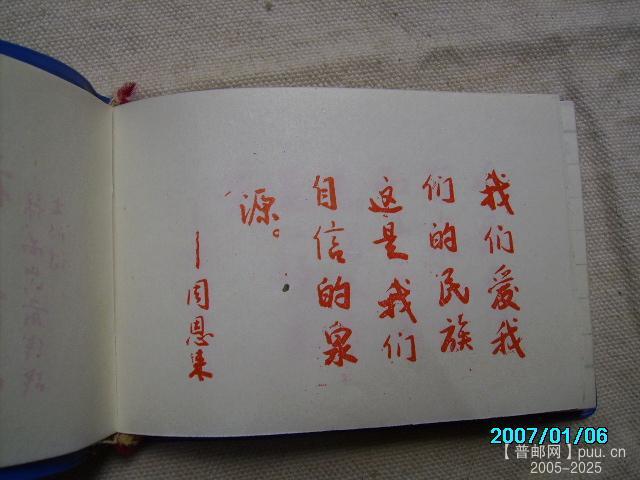 我们爱我
们的民族
这是我们
自信的泉
源。
—周恩来
2007/01/06
【普邮网】puu.cn
2005-2025